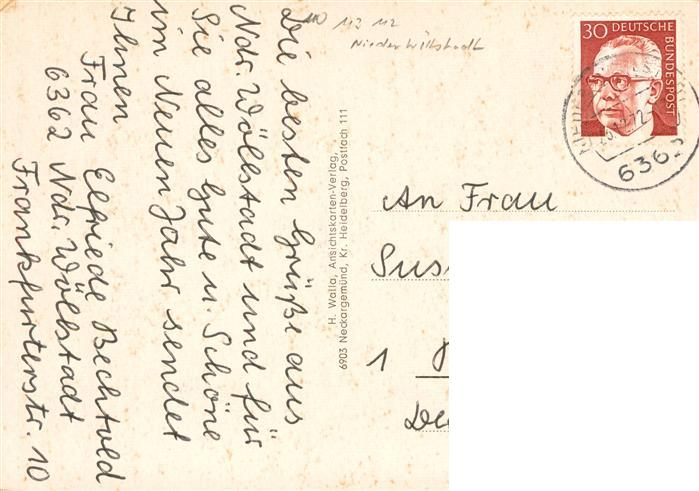 Die besten Grüße aus
Ndr. Wöllstadt und für
Sie alles Gute u. Schöne
im Neuen Jahr sendet
Ihnen
Frau Elfriede Bechtold
6362 Ndr. Wöllstadt
Frankfurterstr. 10
113 112
Nieder Wöllstadt
H. Walla, Ansichtskarten-Verlag,
6903 Neckargemünd, Kr. Heidelberg, Postfach 111
30 DEUTSCHE
BUNDESPOST
636
An Frau
1